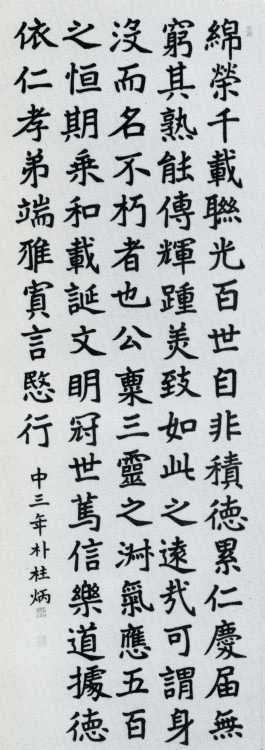 綿榮千載聯光百世自非積德累仁慶屆無
窮其熟能傳輝踵美致如此之遠哉可謂身
沒而名不朽者也公稟三靈之淋氣應五百
之恒期乘和載誕文明冠世篤信樂道據德
依仁孝弟端雅賓言愍行
中三年朴柱炳